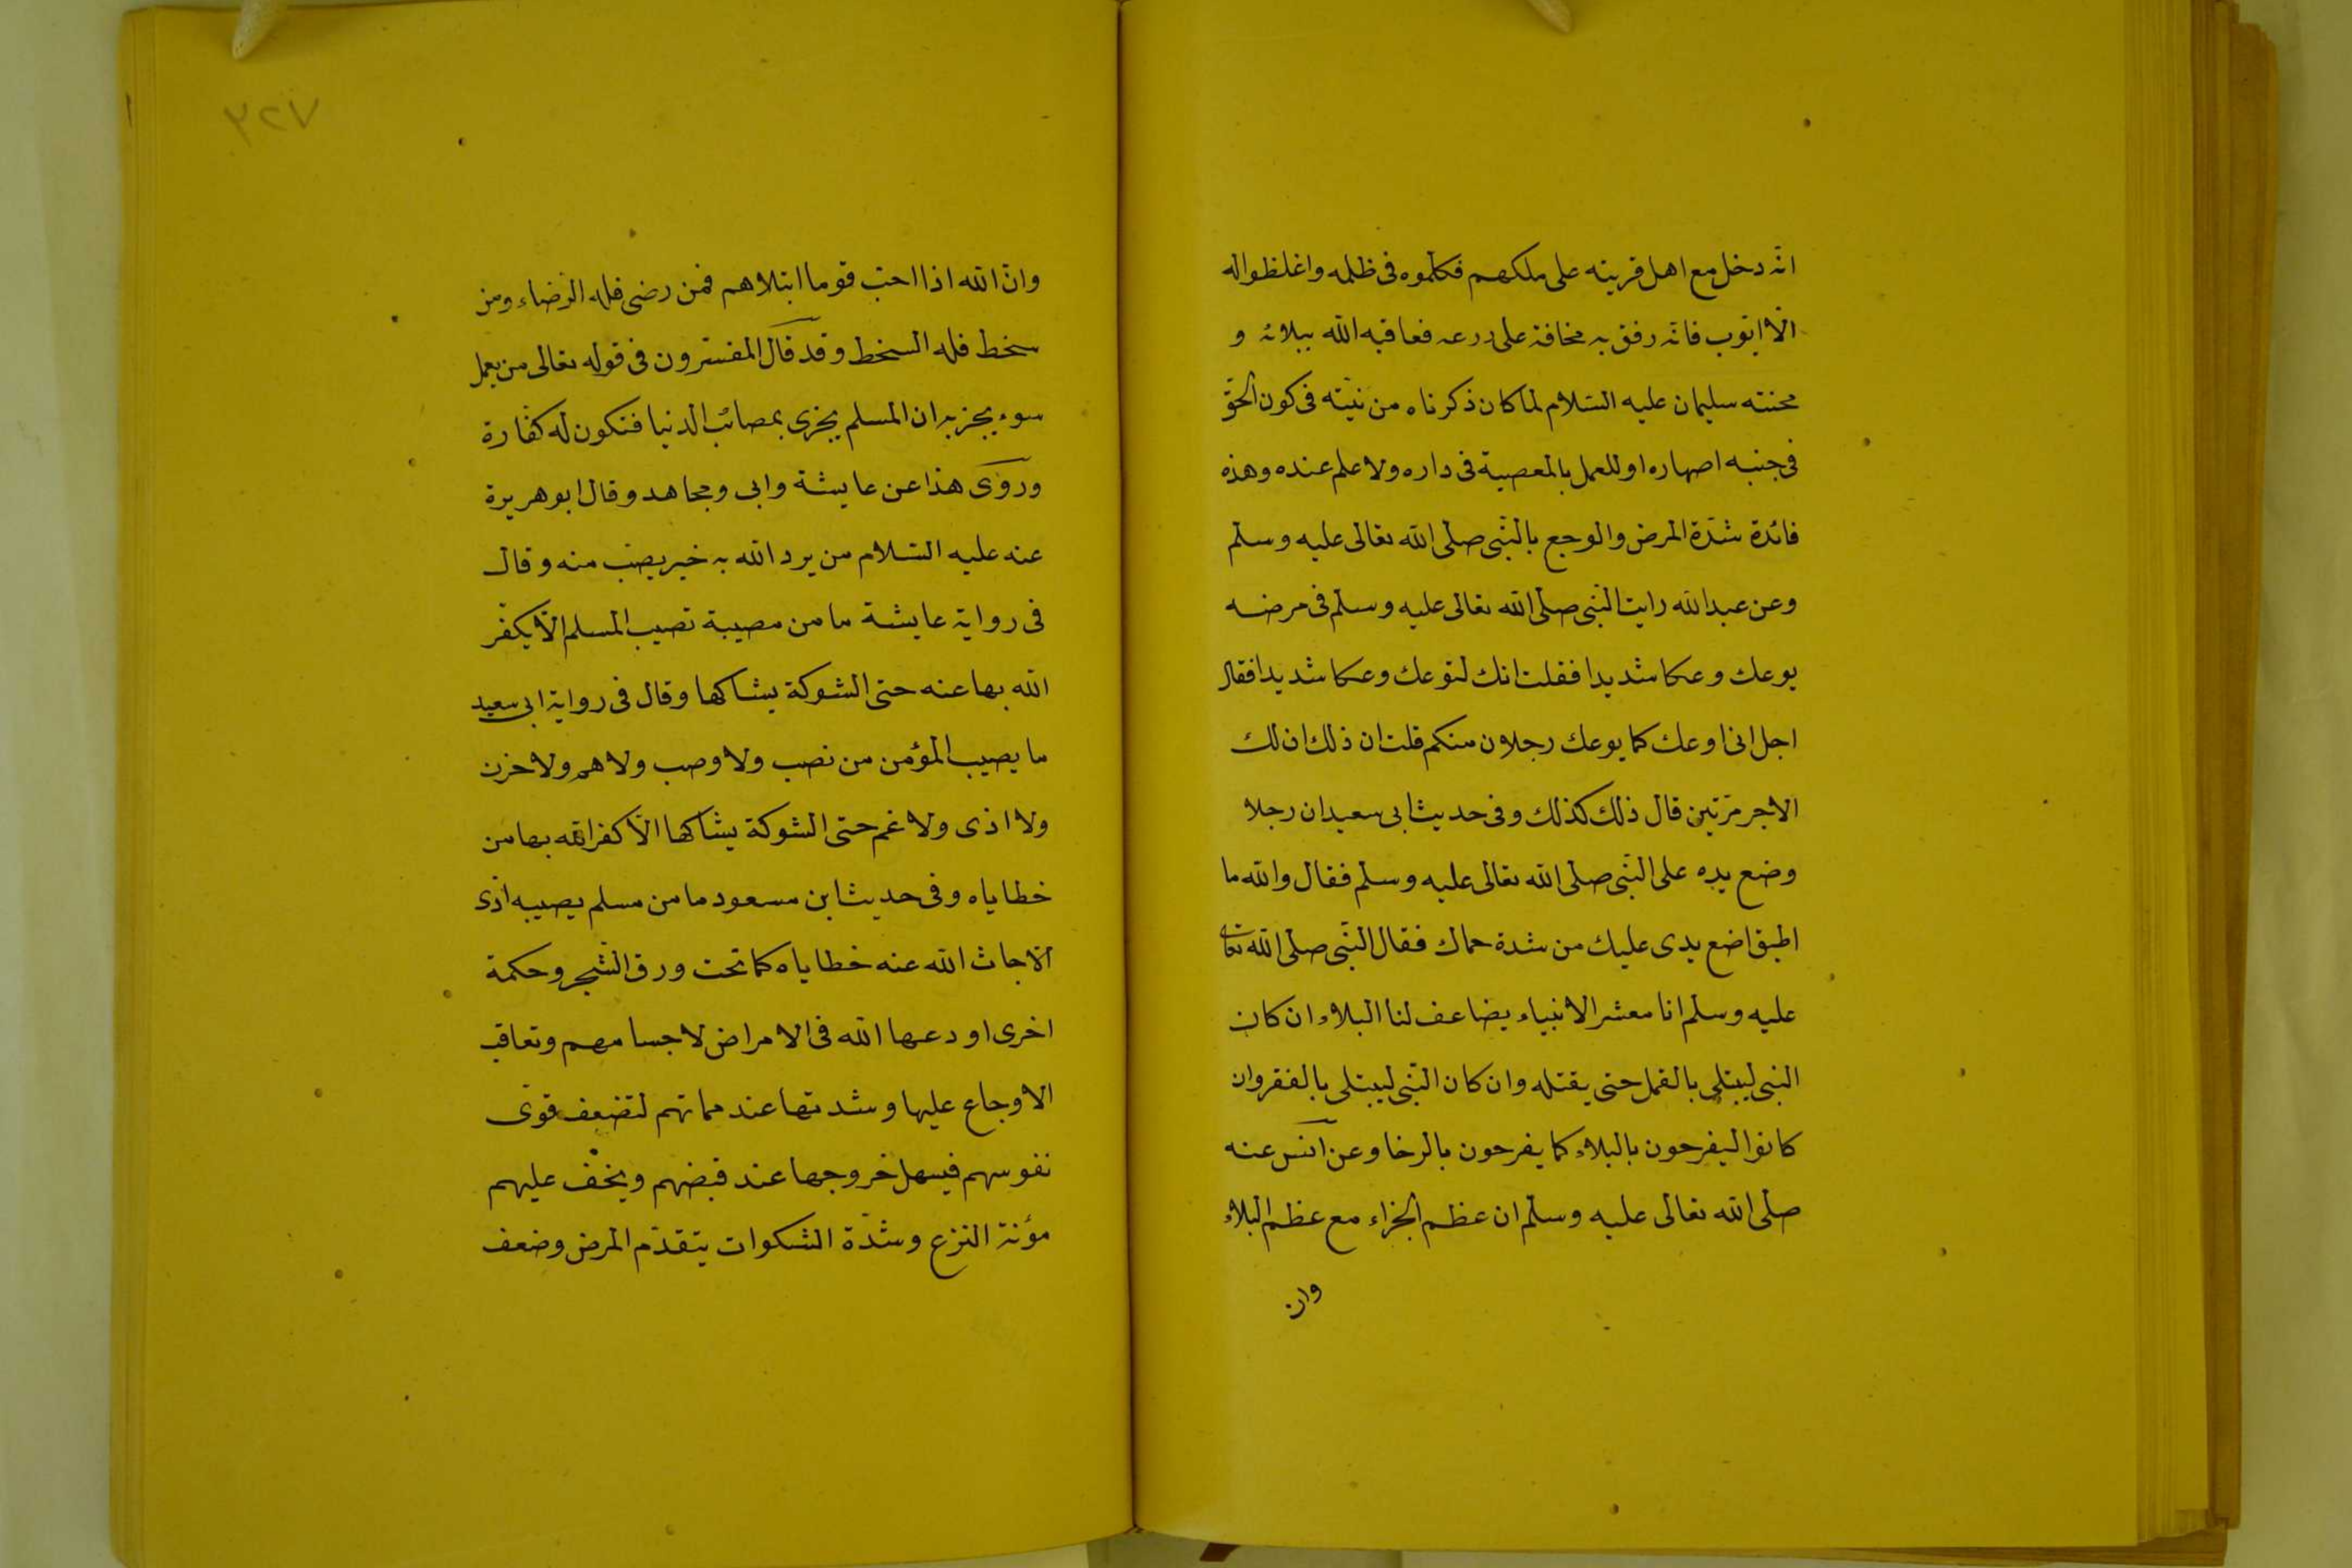 انه دخل مع اهل قريته على ملكهم فكلموه فى ظلمه واغلظوا له
الّا ايّوب فانّه رفق به مخافة على زرعه فعاقبه الله ببلائه و
محنته سليمان عليه السّلام لما كان ذكرناه من نيّته فى كون الحقّ
فى جنبه اصهاره او للعمل بالمعصية فى داره ولا علم عنده وهذه
فائدة شدّة المرض والوجع بالنّبى صلى الله تعالى عليه وسلم
وعن عبد الله رايت النّبى صلى الله تعالى عليه وسلم فى مرضه
يوعك وعكا شديدا فقلت انك لتوعك وعكا شديدا فقال
اجل انى اوعك كما يوعك رجلان منكم قلت ان ذلك ان لك
الاجر مرّتين قال ذلك كذلك وفى حديث ابى سعيد ان رجلا
وضع يده على النّبى صلى الله تعالى عليه وسلم فقال والله ما
اطيق اضع يدى عليك من شدة حماك فقال النّبى صلى الله تعالى
عليه وسلم انا معشر الانبياء يضاعف لنا البلاء ان كان
النبى ليبتلى بالقمل حتى يقتله وان كان النّبى ليبتلى بالفقر وان
كانوا ليفرحون بالبلاء كما يفرحون بالرخا وعن انس عنه
صلى الله تعالى عليه وسلم ان عظم الجزاء مع عظم البلاء
وان
٣٢٧
وانّ الله اذا احبّ قوما ابتلاهم فمن رضى فله الرضاء ومن
سخط فله السخط وقد قال المفسّرون فى قوله تعالى من يعمل
سوء يجز به ان المسلم يجزى بمصائب الدنيا فتكون له كفّارة
وروى هذا عن عايشة وابى ومجاهد وقال ابو هريرة
عنه عليه السّلام من يرد الله به خير يصب منه وقال
فى رواية عايشة ما من مصيبة تصيب المسلم الّا يكفّر
الله بها عنه حتى الشوكة يشاكها وقال فى رواية ابى سعيد
ما يصيب المؤمن من نصب ولا وصب ولا هم ولا حزن
ولا اذى ولا غم حتى الشوكة يشاكها الّا كفر الله بها من
خطاياه وفى حديث ابن مسعود ما من مسلم يصيبه اذى
الّا حات الله عنه خطاياه كما تحت ورق الشّجر وحكمة
اخرى اودعها الله فى الامراض لاجسامهم وتعاقب
الاوجاع عليها وشدتها عند مماتهم لتضعف قوى
نفوسهم فيسهل خروجها عند قبضهم ويخفّ عليهم
مؤنة النزع وشدّة السّكرات يتقدّم المرض وضعف